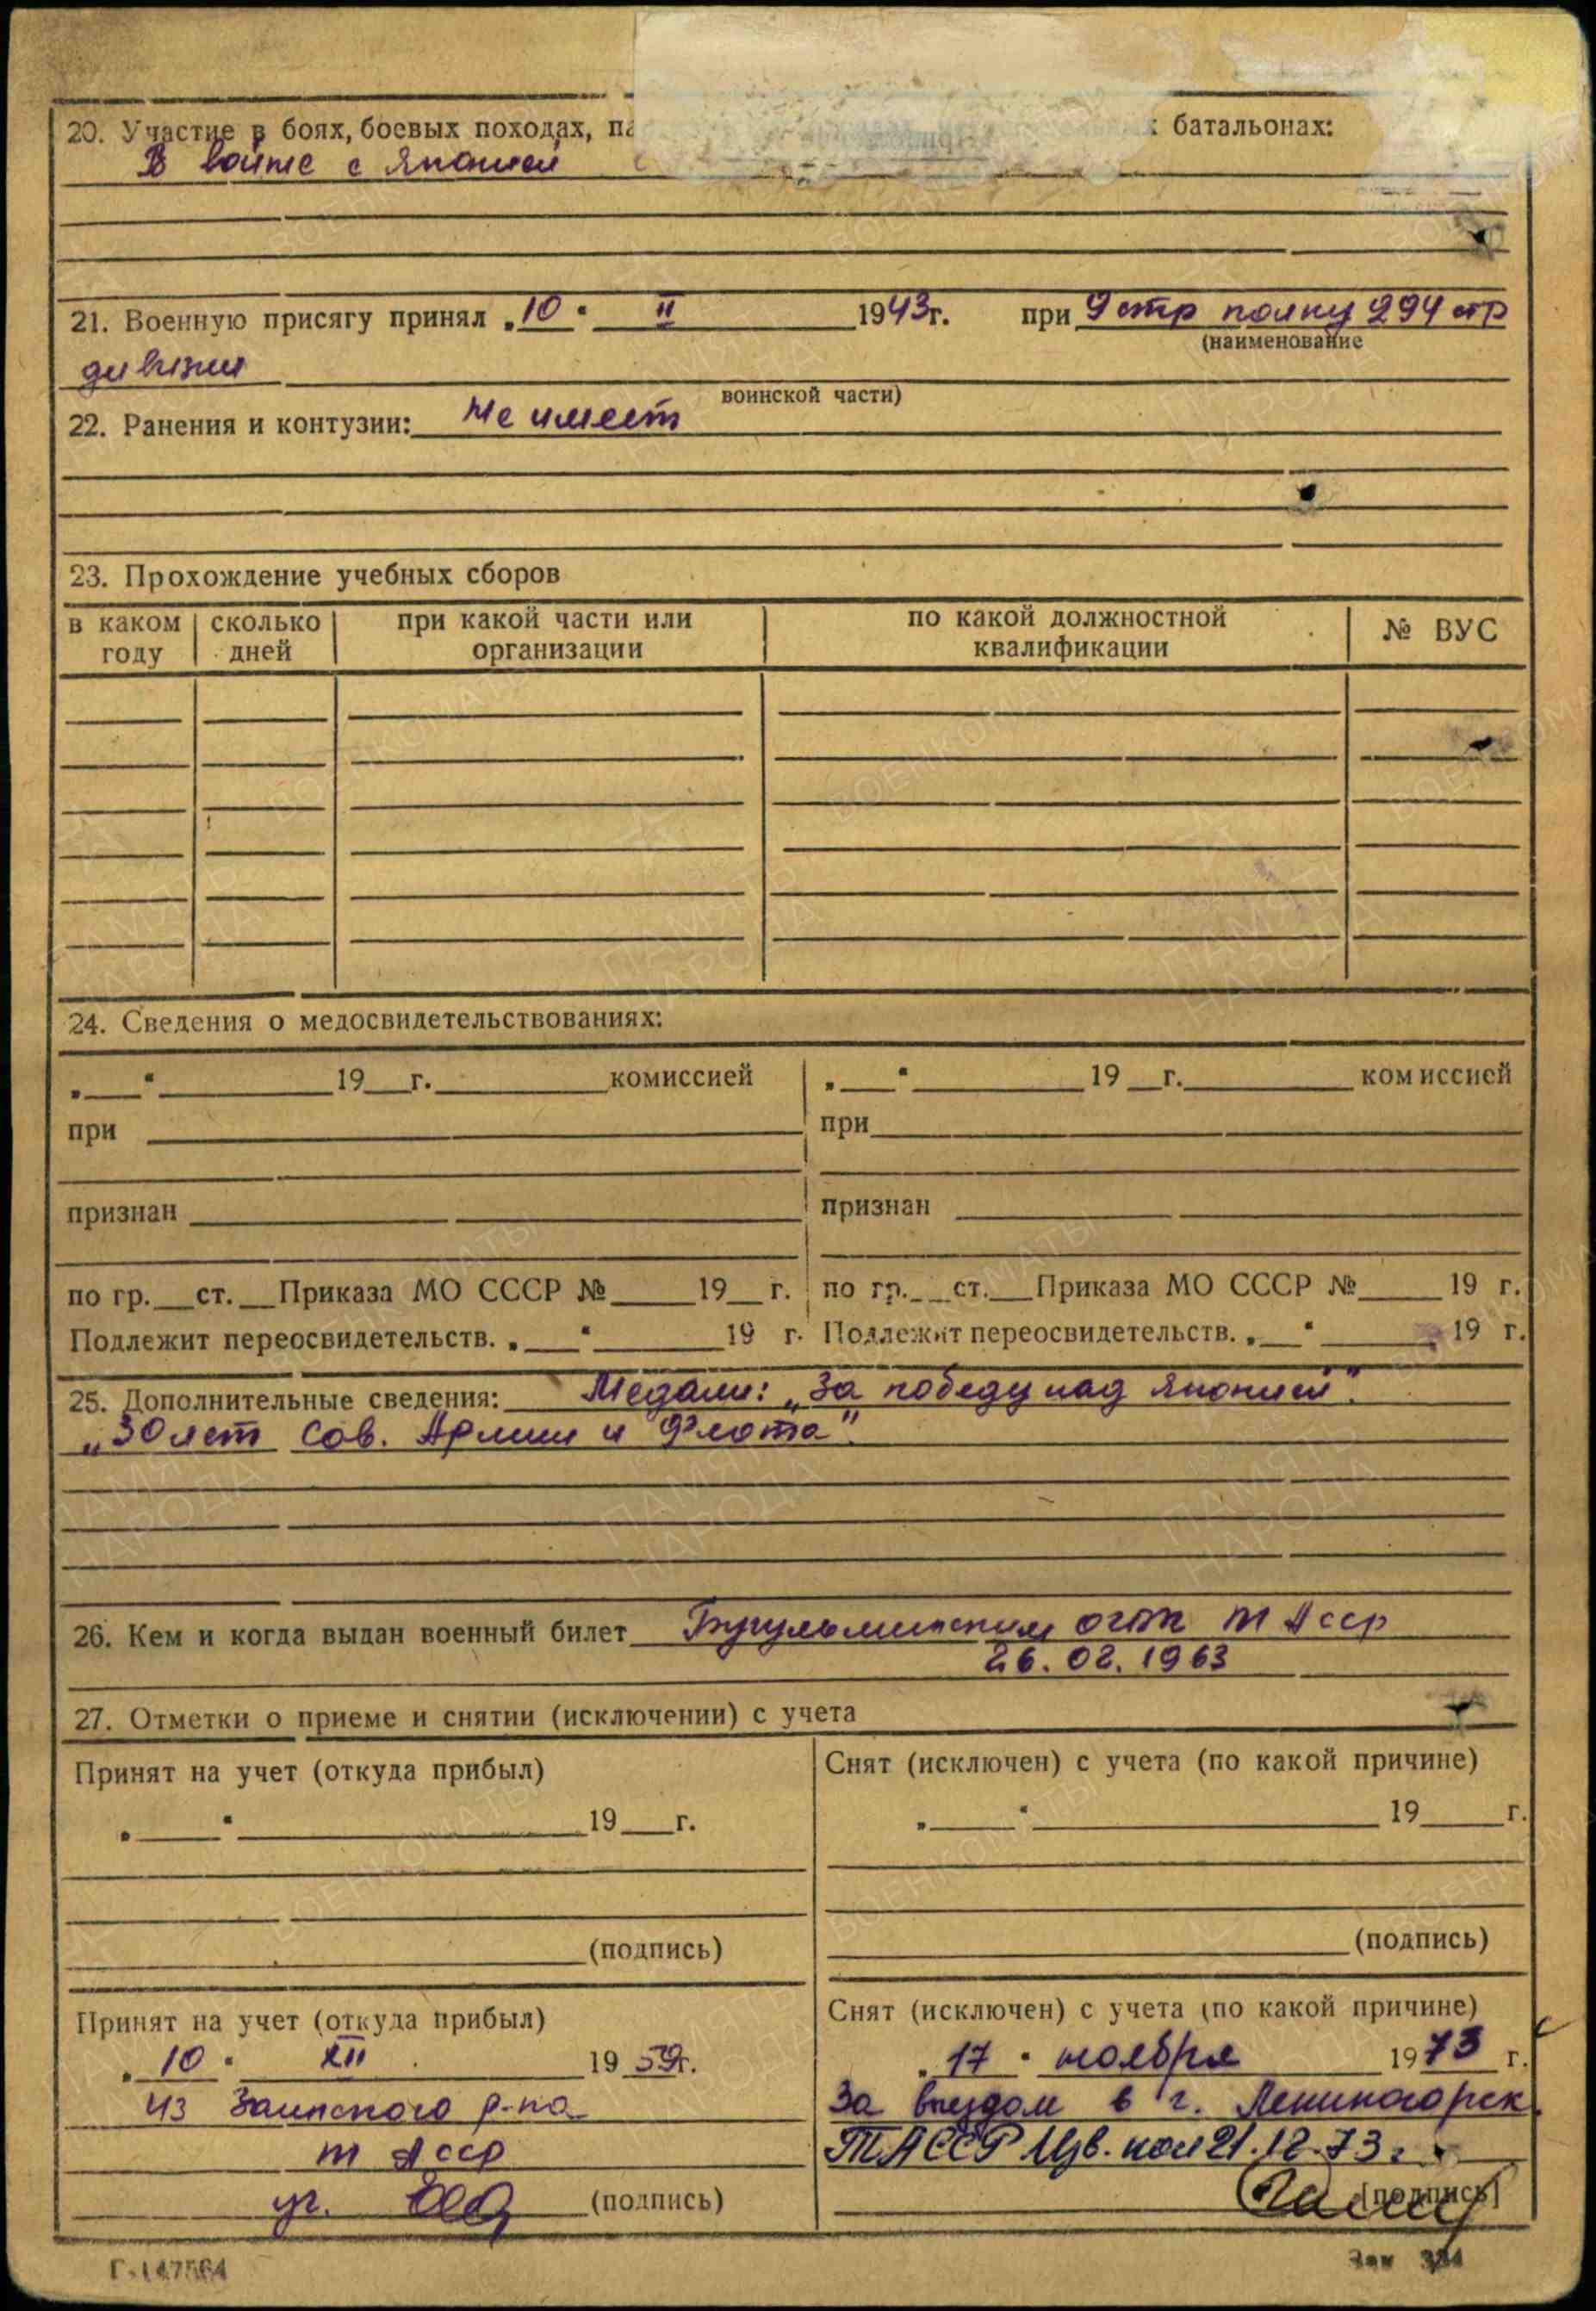 20. Участие в боях, боевых походах, па батальонах:
В войне с Японией
21. Военную присягу принял „10“ II 1943г. при 9 стр полку 294 стр
(наименование
дивизии
воинской части)
22. Ранения и контузии: Не имеет
23. Прохождение учебных сборов
в каком году сколько дней при какой части или организации по какой должностной квалификации № ВУС
24. Сведения о медосвидетельствованиях:
„ “ 19 г. комиссией „ “ 19 г. комиссией
при при
признан признан
по гр. ст. Приказа МО СССР № 19 г. по гр. ст. Приказа МО СССР № 19 г.
Подлежит переосвидетельств. „ “ 19 г. Подлежит переосвидетельств. „ “ 19 г.
25. Дополнительные сведения: Медали: „За победу над Японией“.
„30 лет Сов. Армии и Флота“.
26. Кем и когда выдан военный билет Бугульминским ОГВК ТАССР
26.02.1963
27. Отметки о приеме и снятии (исключении) с учета
Принят на учет (откуда прибыл) Снят (исключен) с учета (по какой причине)
„ “ 19 г. „ “ 19 г.
(подпись) (подпись)
Принят на учет (откуда прибыл) Снят (исключен) с учета (по какой причине)
„10“ XII 1959г. „17“ ноября 1973 г.
из Заинского р-на За выездом в г. Лениногорск
ТАССР ТАССР Изв. 21.12.73г.
(подпись) (подпись)
Г-147564 Зак 334
ПАМЯТЬ НАРОДА
ВОЕНКОМАТЫ